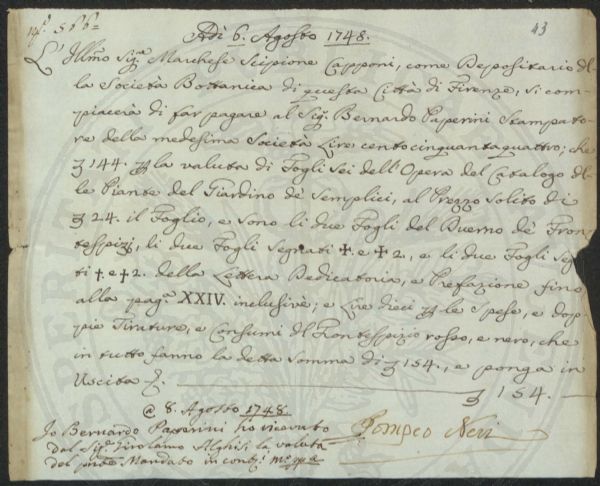 43
Adì 6. Agosto 1748.
L'Illmo Sigre Marchese Scipione Capponi, come Depositario dl-
la Società Bottanica di questa Città di Firenze, si com-
piacerà di far pagare al Sigr Bernardo Paperini Stampato-
re della medesima Società Lire centocinquantaquattro; che
144. la valuta di Fogli Sei dell'Opera del Catalogo dl-
le Piante del Giardino de Semplici, al Prezzo Solito di
24. il Foglio, e sono li due Fogli del Duerno de Fron-
tespizj, li due Fogli Segnati ✝. e ✝ 2., e li due Fogli Seg-
ti ✝. e ✝ 2. della Lettera Dedicatoria, e Prefazione fino
alla paga XXIV. inclusivè; e Lire dieci le Spese, e dop-
pie Tirature, e Consumi dl Frontespizio rosso, e nero, che
in tutto fanno la detta Somma di 154., e ponga in
Uscita 154.
@ 8. Agosto 1748
Io Bernardo Paperini ho ricevuto
dal Sigr Girolamo Alghisi la valuta
del pnte Mandato in contti
Pompeo Neri